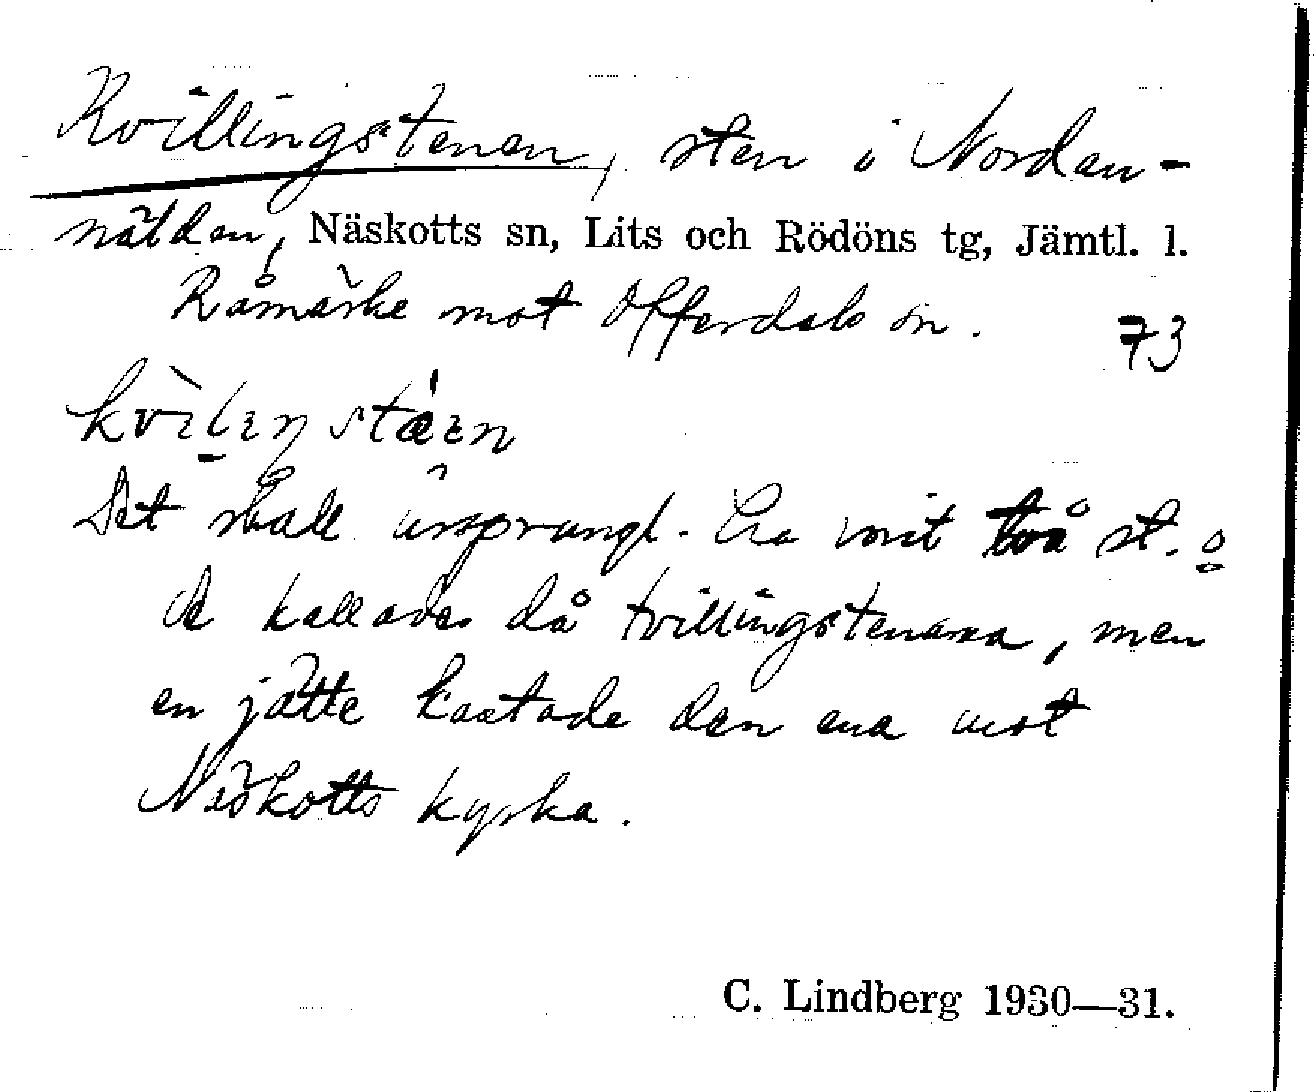 Kvillingstenen, sten i Nordan-
nälden, Näskotts sn, Lits och Rödöns tg, Jämtl. l.
Råmärke mot Offerdals sn.
73
Det skall ursprungl. ha varit två st. o
de kallades då tvillingstenarna, men
en jätte kastade den ena mot
Näskotts kyrka.
C. Lindberg 1930—31.